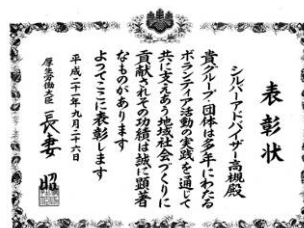 表彰状
シルバーアドバイザー高槻殿
貴グループ・団体は多年にわたる
ボランティア活動の実践を通じて
共に支えあう地域社会づくりに
貢献されその功績は誠に顕著
なものがあります
よってここに表彰します
平成二十一年九月二十六日
厚生労働大臣 長妻 昭